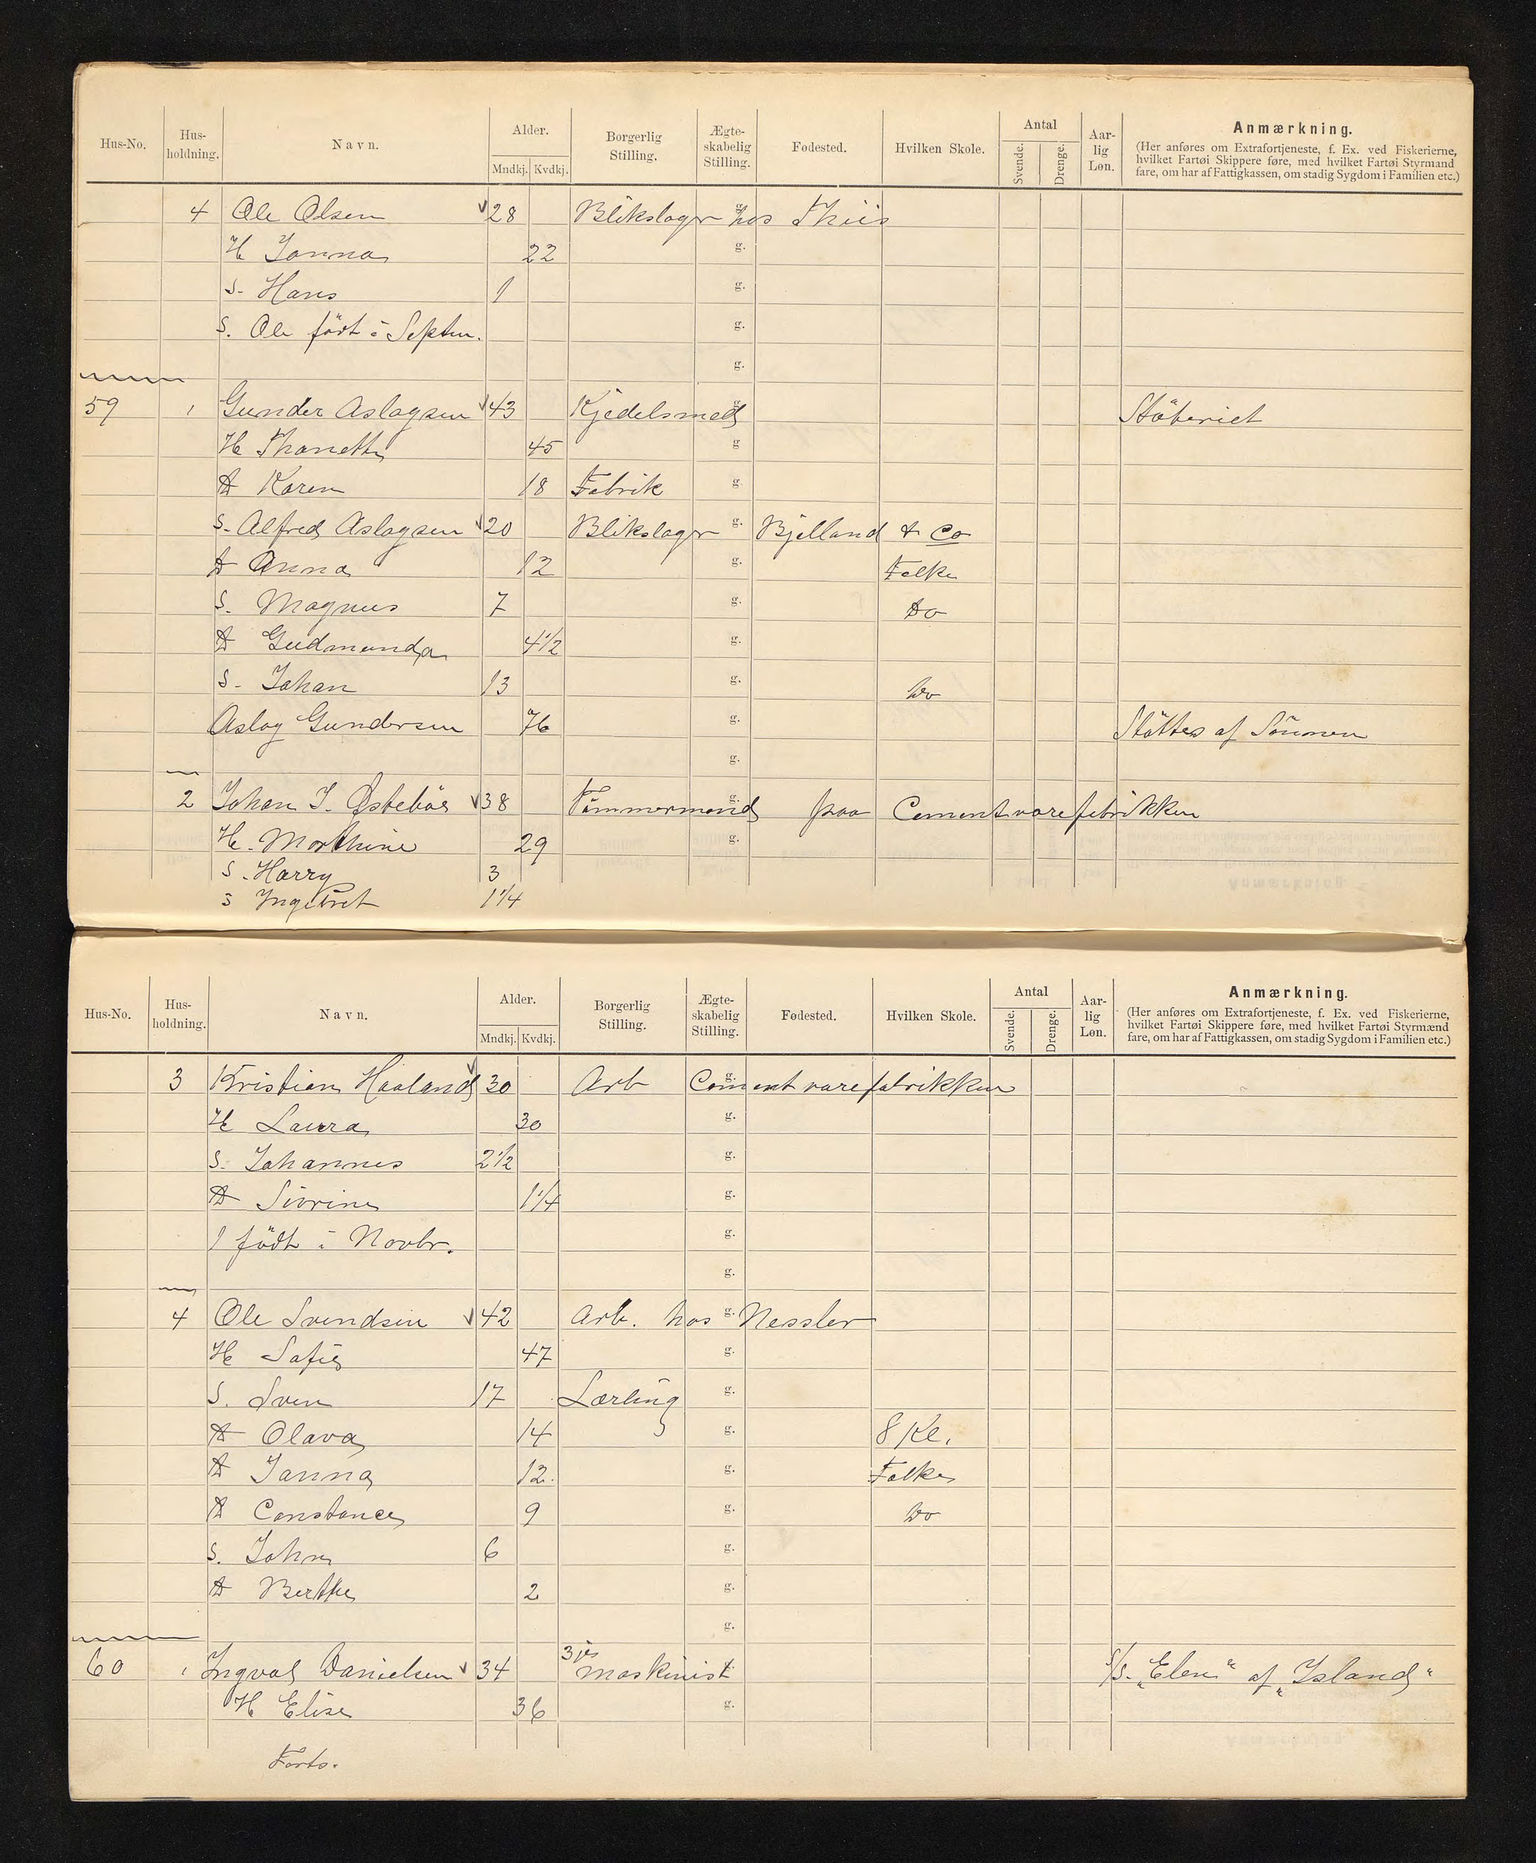 Hus-No. Hus-holdning. Navn. Alder. Mndkj. Kvdkj. Borgerlig Stilling. Ægte-skabelig Stilling. Fødested. Hvilken Skole. Antal Svende. Drenge. Aar-lig Løn. Anmærkning.
(Her anføres om Extrafortjeneste, f. Ex. ved Fiskerierne,
hvilket Fartøi Skippere føre, med hvilket Fartøi Styrmænd
fare, om har af Fattigkassen, om stadig Sygdom i Familien etc.)
4 Ole Olsen 28 Blikslager hos Thiis g.
H Janna 22 g.
S. Hans 1 g.
S. Ole födt i Septm. g.
g.
59 1 Gunder Aslagsen 43 Kjedelsmed g. Stöberiet
H Thonette 45 g
D Karen 18 Fabrik g
S. Alfred Aslagsen 20 Blikslager g. Bjelland & Co
D Anna 12 g. Folke
S. Magnus 7 g. Do
D Gudmunda 4 1/2 g.
S. Johan 13 g. Do
Aslag Gundersen 76 g. Stöttes af Sönnen
g.
2 Johan I. Østebös 38 Tömmermand g. paa Cementvarefabrikken
H. Marthine 29 g.
S. Harry 3
S Ingebret 1 1/4
Hus-No. Hus-holdning. Navn. Alder. Mndkj. Kvdkj. Borgerlig Stilling. Ægte-skabelig Stilling. Fødested. Hvilken Skole. Antal Svende. Drenge. Aar-lig Løn. Anmærkning.
(Her anføres om Extrafortjeneste, f. Ex. ved Fiskerierne,
hvilket Fartøi Skippere føre, med hvilket Fartøi Styrmænd
fare, om har af Fattigkassen, om stadig Sygdom i Familien etc.)
3 Kristian Haaland 30 Arb g. Cementvarefabrikken
H Laura 30 g.
S. Johannes 2 1/2 g.
D Sivrine 1 1/4 g.
1 födt i Novbr. g.
g.
4 Ole Svendsen 42 Arb. hos g. Nessler
H Sofie 47 g.
S. Sven 17 Lærling g.
D Olava 14 g. 8 Kl.
D Janna 12. g. Folke
D Constance 9 g. Do
S. John 6 g.
D Berthe 2 g.
g.
60 1 Ingval Danielsen 34 3je Maskinist g. S/S. „Elen" af „Island"
H Elise 36 g.
Forts.